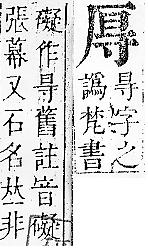 㝵字之
譌梵書
礙作㝵舊註音礙
張幕又石名𠀤非